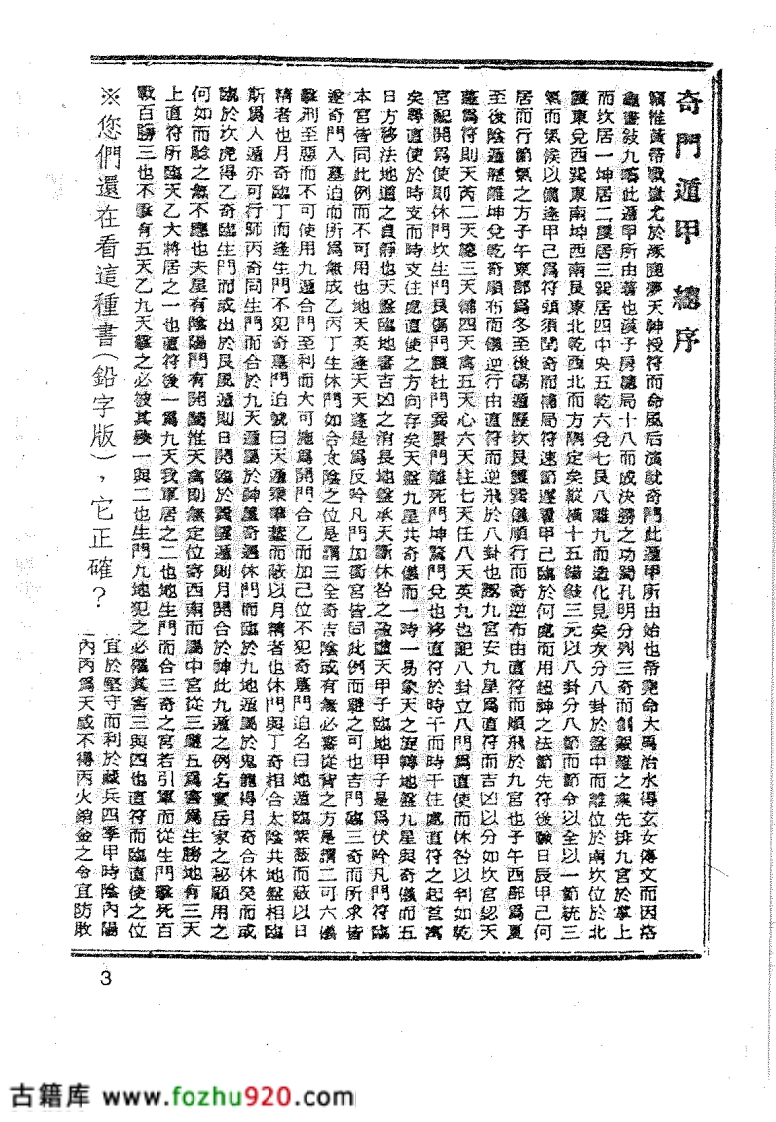 奇門遁甲 總序
竊惟黃帝戰蚩尤於涿鹿夢天神授符而命風后演就奇門此遁甲所由始也帝堯命大禹治水得玄女傳文而因洛
龜書敍九疇此遁甲所由著也漢子房總局十八而成決勝之功蜀孔明分列三奇而創嚴羅之業先排九宮於掌上
而坎居一坤居二震居三巽居四中央五乾六兌七艮八離九而造化見矣次分八卦於盤中而離位於南坎位於北
震東兌西巽東南坤西南艮東北乾西北而方隅定矣縱橫十五錯敍三元以八卦分八節而節令以全以一節統三
氣而氣候以備逢甲己為符頭須閏奇而補局符速節遲看甲己臨於何處而用超神之法節先符後驗日辰甲己何
居而行節氣之方子午東部為冬至後陽遁歷坎艮震巽儀順行而奇逆布由直符而順飛於九宮也子午西部為夏
至後陰遁歷離坤兌乾奇順布而儀逆行由直符而逆飛於八卦也認九宮安九星為直符而吉凶以分如坎宮認天
蓬為符則天芮二天總三天輔四天禽五天心六天柱七天任八天英九也配八卦立八門為直使而休咎以判如乾
宮配開為使則休門坎生門艮傷門震杜門巽景門離死門坤驚門兌也移直符於時干而時干住處直符之起宮寓
矣尋直使於時支而時支住處直使之方向存矣天盤九星共奇儀而一時一易象天之旋轉地盤九星與奇儀而五
日方移法地道之貞靜也天盤臨地審吉凶之消長地盤承天斷休咎之盈虛天甲子臨地甲子是為伏吟凡門符臨
本宮皆同此例而不可用也地天英逢天天蓬是為反吟凡門加衝宮皆同此例而避之可也吉門臨三奇而所求皆
遂奇門入墓迫而所為無成乙丙丁生休門如合太陰之位是謂三全奇吉陰或有無必審從背之方是謂二可六儀
擊刑至惡而不可使用九遁合門至利而大可施為開門合乙而加己位不犯奇墓門迫名曰地遁臨紫薇而蔽以日
精者也月奇臨丁而逢生門不犯奇墓門迫號曰天遁乘華蓋而蔽以月精者也休門與丁奇相合太陰共地盤相臨
斯為人遁亦可行師丙奇同生門而合於九天遁屬於神星奇遇休門而臨於九地遁屬於鬼龍得月奇合休癸而或
臨於坎虎得乙奇臨生門而或出於艮風遁則日開臨於巽雲遁則月開合於坤此九遁之例名實居家之秘顯用之
何如而驗之無不應也夫星有陰陽門有開闔惟天禽則無定位寄西南而屬中宮從三避五為害為生勝地有三天
上直符所臨天乙大將居之一也直符後一為九天我軍居之二也地生門而合三奇之宮若引軍而從生門擊死百
戰百勝三也不擊有五天乙九天擊之必被其殃一與二也生門九地犯之必罹其害三與四也直符而臨直使之位
宜於堅守而利於藏兵四季甲時陰內陽
內丙為天威不得丙火鎔金之令宜防敗
※您們還在看這種書(鉛字版)，它正確？
3
古籍库 www.fozhu920.com